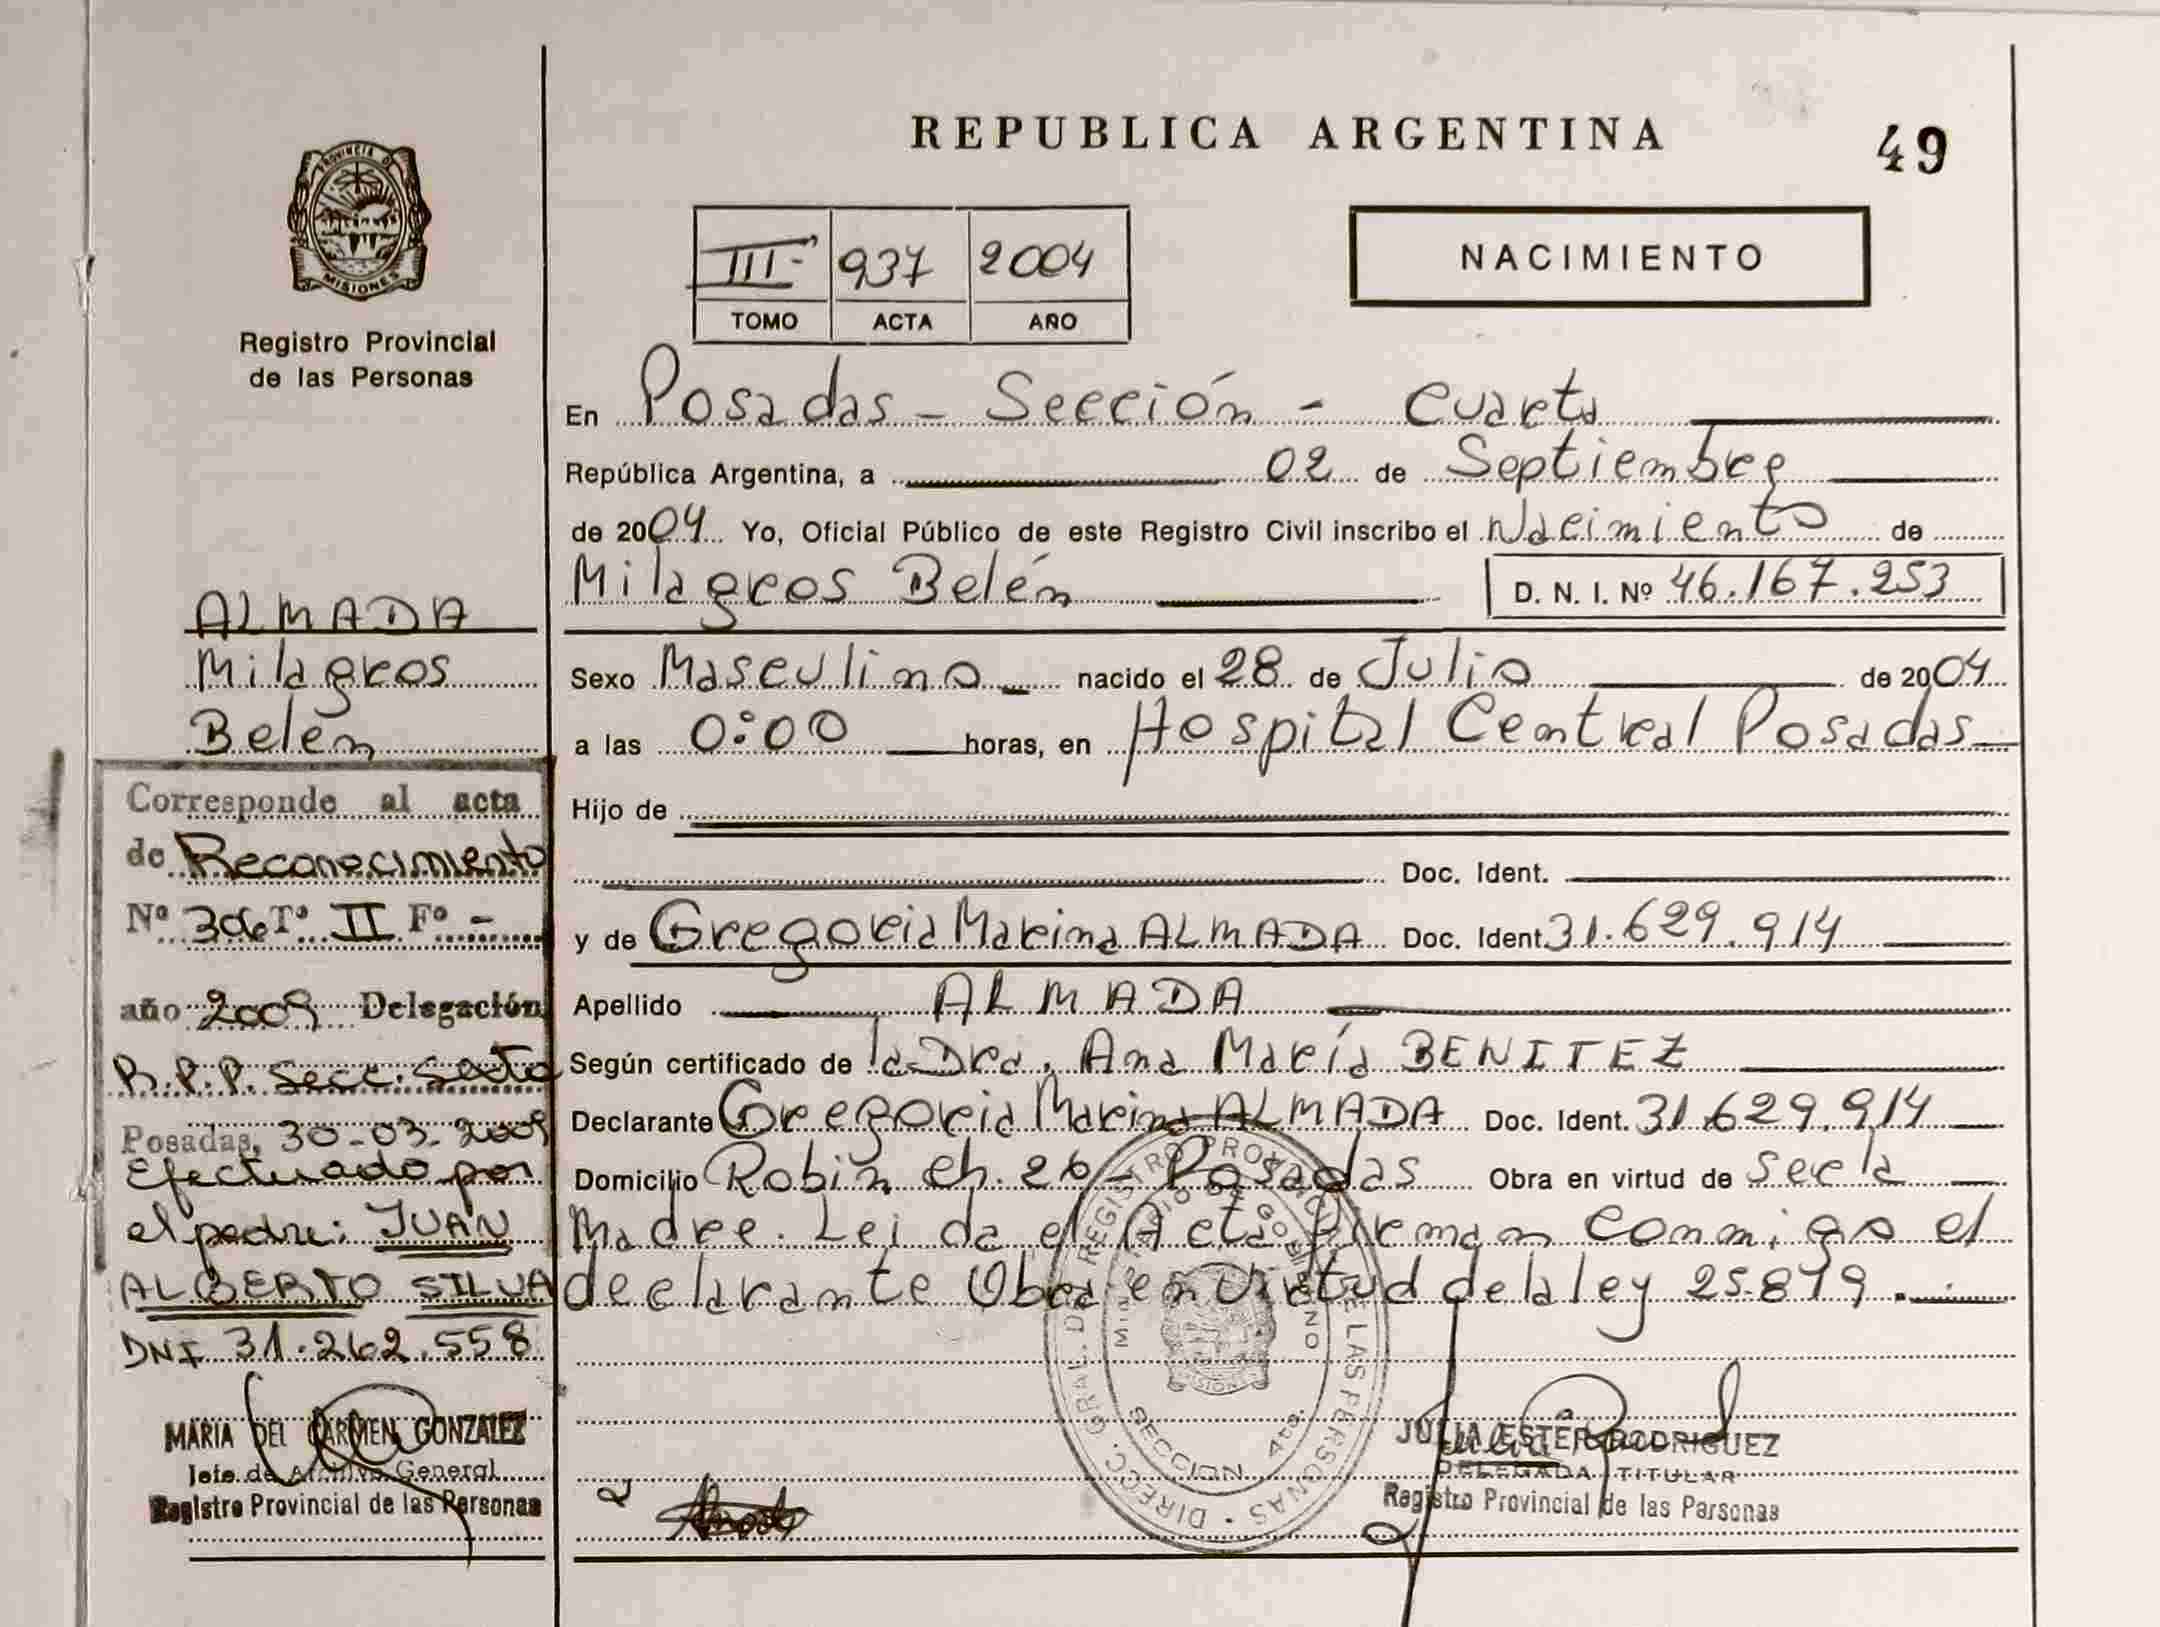 REPUBLICA ARGENTINA
49
PROVINCIA DE
MISIONES
Registro Provincial
de las Personas
III 937 2004
TOMO ACTA AÑO
NACIMIENTO
En Posadas - Sección - Cuarta
República Argentina, a 02 de Septiembre
de 2004 Yo, Oficial Público de este Registro Civil inscribo el Nacimiento de
Milagros Belén D. N. I. Nº 46.167.253
Sexo Masculino nacido el 28 de Julio de 2004
a las 0:00 horas, en Hospital Central Posadas
Hijo de
Doc. Ident.
y de Gregoria Marina ALMADA Doc. Ident. 31.629.914
Apellido ALMADA
Según certificado de la Dra. Ana María BENITEZ
Declarante Gregoria Marina ALMADA Doc. Ident. 31.629.914
Domicilio Robin ch. 26 - Posadas Obra en virtud de ser la
Madre. Leida el Acta firman conmigo el
declarante Obra en virtud de la ley 25.819.
ALMADA
Milagros
Belén
Corresponde al acta
de Reconocimiento
Nº 306 Tº II Fº -
año 2009 Delegación
R.P.P. Secc. Sexta
Posadas, 30-03-2009
Efectuado por
el padre: JUAN
ALBERTO SILVA
DNI 31.262.558
MARIA DEL CARMEN GONZALEZ
Jefe de Archivo General
Registro Provincial de las Personas
DIRECC. GRAL. DE REGISTRO PROVINCIAL DE LAS PERSONAS
MINISTERIO DE GOBIERNO
MISIONES
SECCION 4ta.
JULIA ESTER RODRIGUEZ
DELEGADA TITULAR
Registro Provincial de las Personas